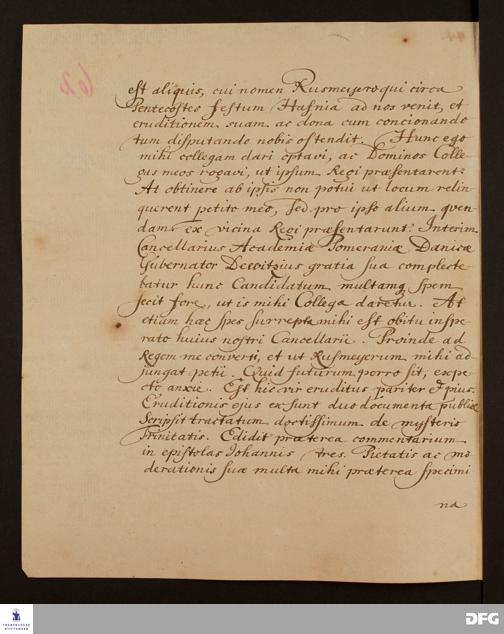 62
est aliquis, cui nomen Rusmeyero qui circa
Pentecostes festum Hafnia ad nos venit, et
eruditionem suam ac dona cum concionando
tum disputando nobis ostendit. Hunc ego
mihi collegam dari optavi, ac Dominos Colle-
gas meos rogavi, ut ipsum Regi præsentarent:
At obtinere ab ipsis non potui ut locum relin-
querent petito meo, sed pro ipso alium quen-
dam ex vicina Regi præsentarunt: Interim
Cancellarius Academiæ Pomeraniæ Danicæ
Gubernator Dewitzius gratia sua complecte-
batur hunc Candidatum multamq spem
fecit fore, ut is mihi Collega daretur. At
etiam hæc spes surrepta mihi est obitu inspe-
rato huius nostri Cancellarii. Proinde ad
Regem me converti, et ut Rusmeyerum mihi ad-
jungat petii. Quid futurum porro sit, expe-
cto anxie. Est hic vir eruditus pariter & pius.
Eruditionis ejus exsunt duo documenta publica
Scripsit tractatum doctissimum de mysterio
Trinitatis. Edidit præterea commentarium
in epistolas Iohannis tres. Pietatis ac mo-
derationis suæ multa mihi præterea specimi
na
FRANCKESCHE
STIFTUNGEN
DFG